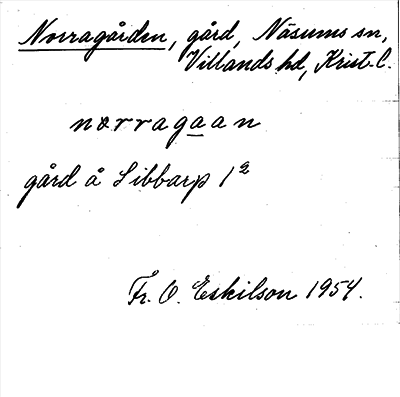 Norragården, gård, Näsums sn,
Villands hd, Krist. l.
norragaan
gård å Sibbarp 1²
Fr. O. Eskilson 1954.